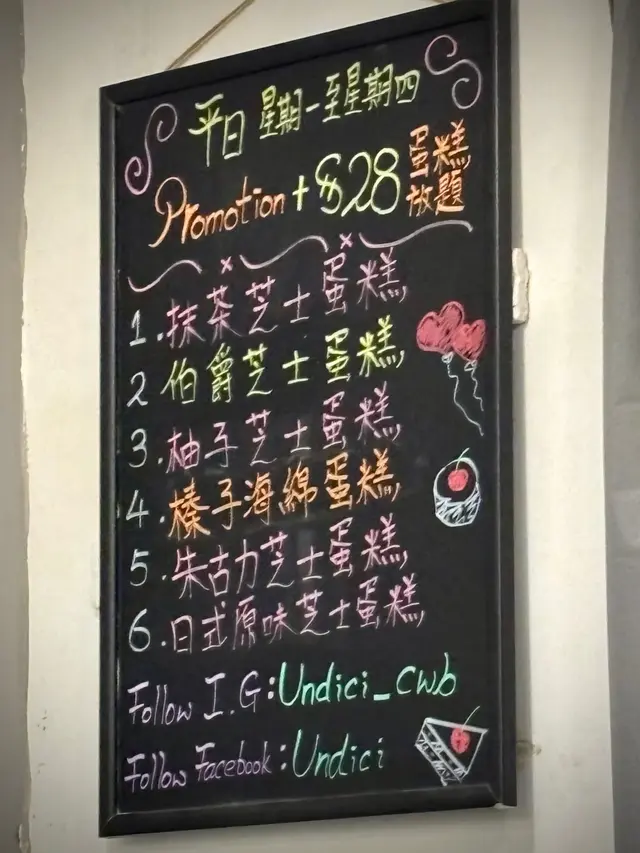 平日 星期一至星期四
Promotion + $28 蛋糕放題
1. 抹茶芝士蛋糕
2 伯爵芝士蛋糕
3. 柚子芝士蛋糕
4. 榛子海綿蛋糕
5. 朱古力芝士蛋糕
6. 日式原味芝士蛋糕
Follow I.G: Undici_cwb
Follow Facebook: Undici